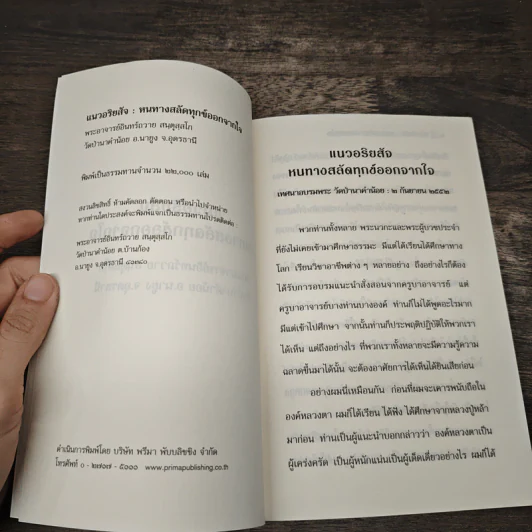 แนวอริยสัจ : หนทางสลัดทุกข์ออกจากใจ
พระอาจารย์อินทร์ถวาย สนฺตุสฺสโก
วัดป่านาคำน้อย อ.นายูง จ.อุดรธานี
พิมพ์เป็นธรรมทานจำนวน ๒๒,๐๐๐ เล่ม
สงวนลิขสิทธิ์ ห้ามคัดลอก ตัดตอน หรือนำไปจำหน่าย
หากท่านใดประสงค์จะพิมพ์แจกเป็นธรรมทานโปรดติดต่อ
พระอาจารย์อินทร์ถวาย สนฺตุสฺสโก
วัดป่านาคำน้อย ต.บ้านก้อง
อ.นายูง จ.อุดรธานี ๔๑๓๘๐
ดำเนินการพิมพ์โดย บริษัท พรีมา พับบลิชชิง จำกัด
โทรศัพท์ ๐ - ๒๗๐๗ - ๕๐๐๐ www.primapublishing.co.th
แนวอริยสัจ
หนทางสลัดทุกข์ออกจากใจ
เทศนาอบรมพระ วัดป่านาคำน้อย : ๒ กันยายน ๒๕๕๒
พวกท่านทั้งหลาย พระนวกะและพระผู้บวชประจำ
ที่ยังไม่เคยเข้ามาศึกษาธรรมะ มีแต่ได้เรียนได้ศึกษาทาง
โลก เรียนวิชาอาชีพต่าง ๆ หลายอย่าง ถึงอย่างไรก็ต้อง
ได้รับการอบรมแนะนำสั่งสอนจากครูบาอาจารย์ แต่
ครูบาอาจารย์บางท่านบางองค์ ท่านก็ไม่ได้พูดอะไรมาก
มีแต่เข้าไปศึกษา จากนั้นท่านก็ประพฤติปฏิบัติให้พวกเรา
ได้เห็น แต่ถึงอย่างไร ที่พวกเราทั้งหลายจะมีความรู้ความ
ฉลาดขึ้นมาได้นั้น จะต้องอาศัยการได้เห็นได้ยินเสียก่อน
อย่างผมนี่เหมือนกัน ก่อนที่ผมจะเคารพนับถือใน
องค์หลวงตา ผมก็ได้เรียน ได้ฟัง ได้ศึกษาจากหลวงปู่หล้า
มาก่อน ท่านเป็นผู้แนะนำบอกกล่าวว่า องค์หลวงตาเป็น
ผู้เคร่งครัด เป็นผู้หนักแน่นเป็นผู้เด็ดเดี่ยวอย่างไร ผมก็ได้